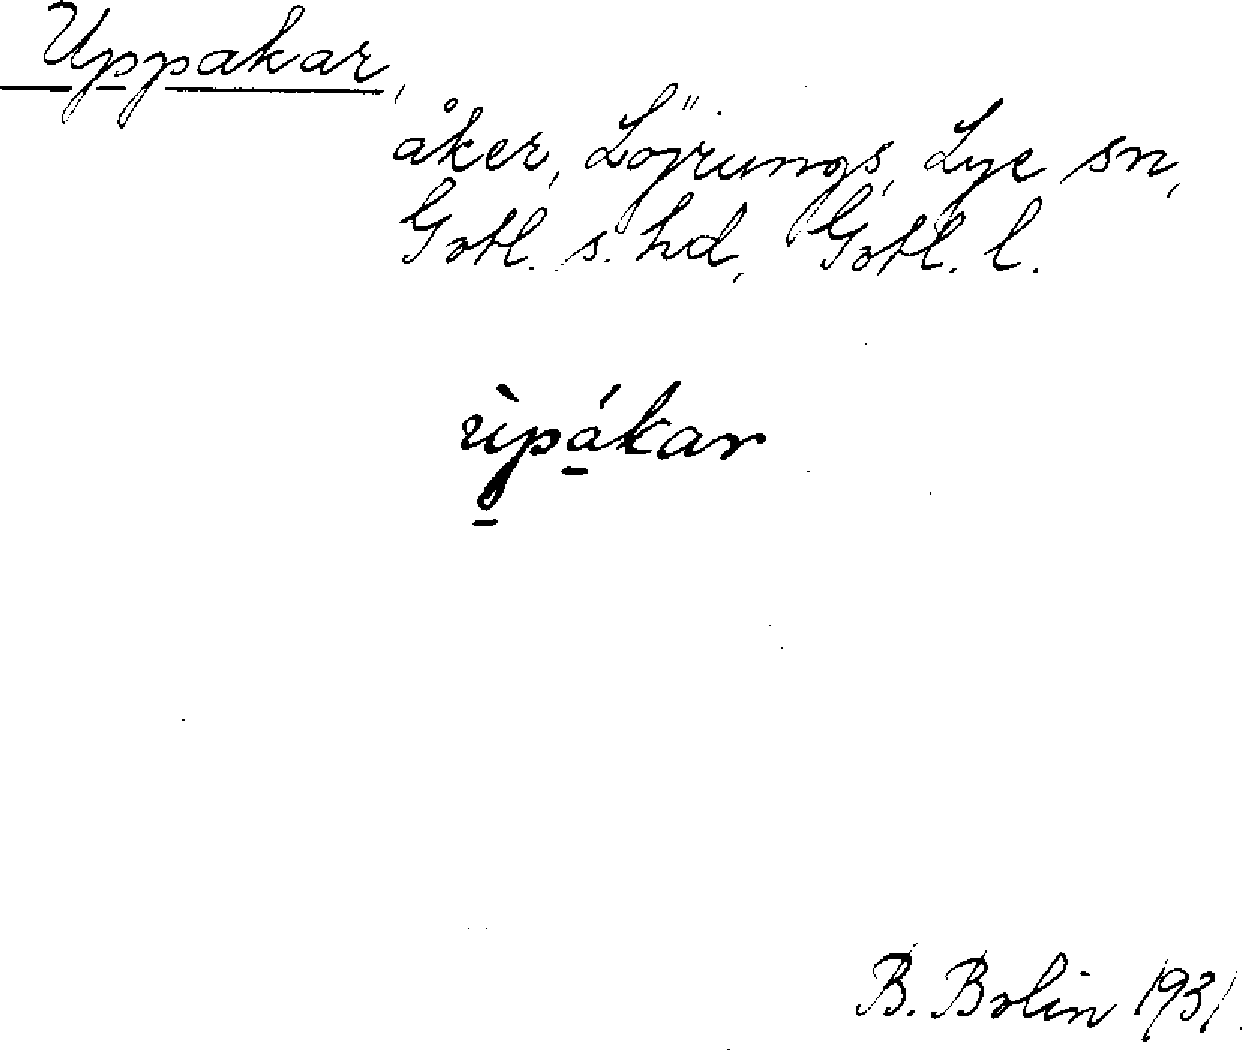 Uppakar,
åker, Löjrungs, Lye sn,
Gotl. s. hd, Gotl. l.
ùpákar
B. Bolin 1931.